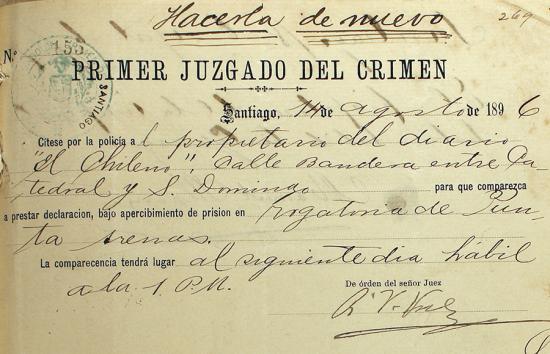 Hacerla de nuevo
269
N.º 155
SANTIAGO
PRIMER JUZGADO DEL CRIMEN
Santiago, 14 de agosto de 1896
Cítese por la policía al propietario del diario
"El Chileno", Calle Bandera entre Ca-
tedral y S. Domingo para que comparezca
a prestar declaracion, bajo apercibimiento de prision en rogatoria de Pun-
ta Arenas.
La comparecencia tendrá lugar al siguiente dia hábil
a la 1 P.M.
De órden del señor Juez